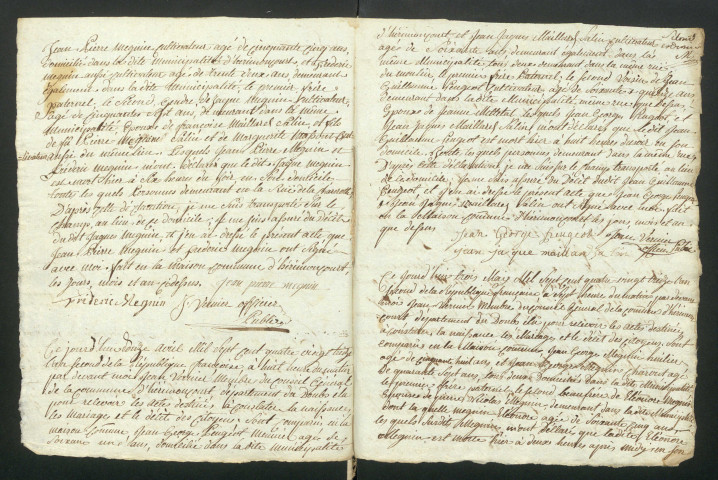 Jean Pierre Meguin cultivateur agé de cinquante cinq ans,
Domicilié dans la dite Municipalité d'herimoncourt, et frederic
meguin aussi cultivateur agé de trente deux ans, demeurant
également dans la ditte Municipalité, le premier, frère
paternel, le second, gendre, de Jaque Meguin cultivateur
agé de cinquante et sept ans, demeurant dans la même
Municipalité, Epoux de françoise Maillard Salin, et fils
de fû Pierre Meguin Salin et de Marguerite
du même lieu. Lesquels Jean Pierre Meguin et
frederic meguin mont Déclaré que le dit Jaque meguin
est mort hier à six heures du soir en son domicile,
toutes les quels Personnes demeurant en la Rue de la
D'après cette déclaration, je me suis transporté sur le
champ, au lieu de ce domicile, je me suis assuré du décès
du dit Jaque meguin, et j'en ai dressé le présent acte que
Jean Pierre Meguin et frederic Meguin ont signé
avec moi. fait en la Maison commune d'herimoncourt,
les Jours, mois et an cidessus. Jean pierre meguin
frideric Meguin J Vernier officier
Public
Ce jourd'hui douze avril Mil sept cent quatre vingt treize
l'an second de la République francaise à huit heures du matin
par devant moi Jean Vernier Membre du conseil General
de la commune d'herimoncourt, département du Doubs élu
pour recevoir les actes destinés à constater la naissance,
les Mariages et le décès des citoyens, sont comparus en la
maison commune, Jean George Peugeot, Meunier, agé de
soixante un ans, domicilié dans la dite municipalité
d'herimoncourt, et Jean Jaques Maillard Salin cultivateur
agé de soixante ans demeurant également dans la
même Municipalité, tous deux demeurant dans la même rue
du moulin, le premier frère Paternel, le second voisin de Jean
Guillaume Peugeot cultivateur, agé de soixante et quatre ans,
demeurant dans la dite Municipalité, même rue que dessus,
Epoux de Jeanne Mettetal, les quels Jean George Peugeot et
Jean Jaques Maillard Salin, mont déclaré que le dit Jean
Guillaume Peugeot est mort hier à huit heures du soir en son
domicile, toutes les quels personnes demeurant dans la même rue,
d'après cette déclaration, je me suis sur le champ transporté, au lieu
de ce domicile, je me suis assuré du décès dudit Jean Guillaume
Peugeot, et j'en ai dressé le présent acte, que Jean George Peugeot
et Jean Jaques Maillard Salin ont signé avec moi, fait
en la Maison commune d'herimoncourt les jours, mois et an
que dessus
Jean George Peugeot Jean Vernier
Jean jaque maillard salin officier Public
Ce jourd'hui trois Mai Mil sept cent quatre vingt treize l'an
second de la République française, à sept heures du matin par devant
moi Jean Vernier Membre du conseil General de la commune d'herimon-
court département du Doubs, élu pour recevoir les actes destinés
à constater la naissance, les Mariages et le décès des citoyens, sont
comparus en la Maison commune, Jean George Meguin huilier
agé de cinquante huit ans et Jean George Meguin charron agé
de quarante sept ans, tous deux domiciliés dans la dite Municipalité,
le premier frère paternel, le second beaufrere de Eléonore Meguin
Epouse de Nicolas Meguin, demeurant dans la dite Municipalité,
dont la quelle meguin Eléonore agée de soixante cinq ans,
les quels susdits Meguin, mont déclaré que la dite Eléonore
Meguin est morte hier à deux heures après midy en son